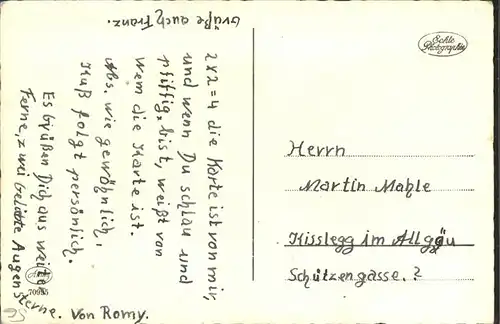 2x2=4 die Karte ist von mir,
und wenn Du schlau und
pfiffig, bist, weißt von
wem die Karte ist.
Abs. wie gewöhnlich,
Kuß folgt persönlich.
Es Grüßen Dich aus weiter
Ferne, zwei Geliebte Augensterne.
Von Romy.
Grüße auch Franz.
Echte
Photographie
Herrn
Martin Mahle
Kisslegg im Allgäu
Schützengasse. ?